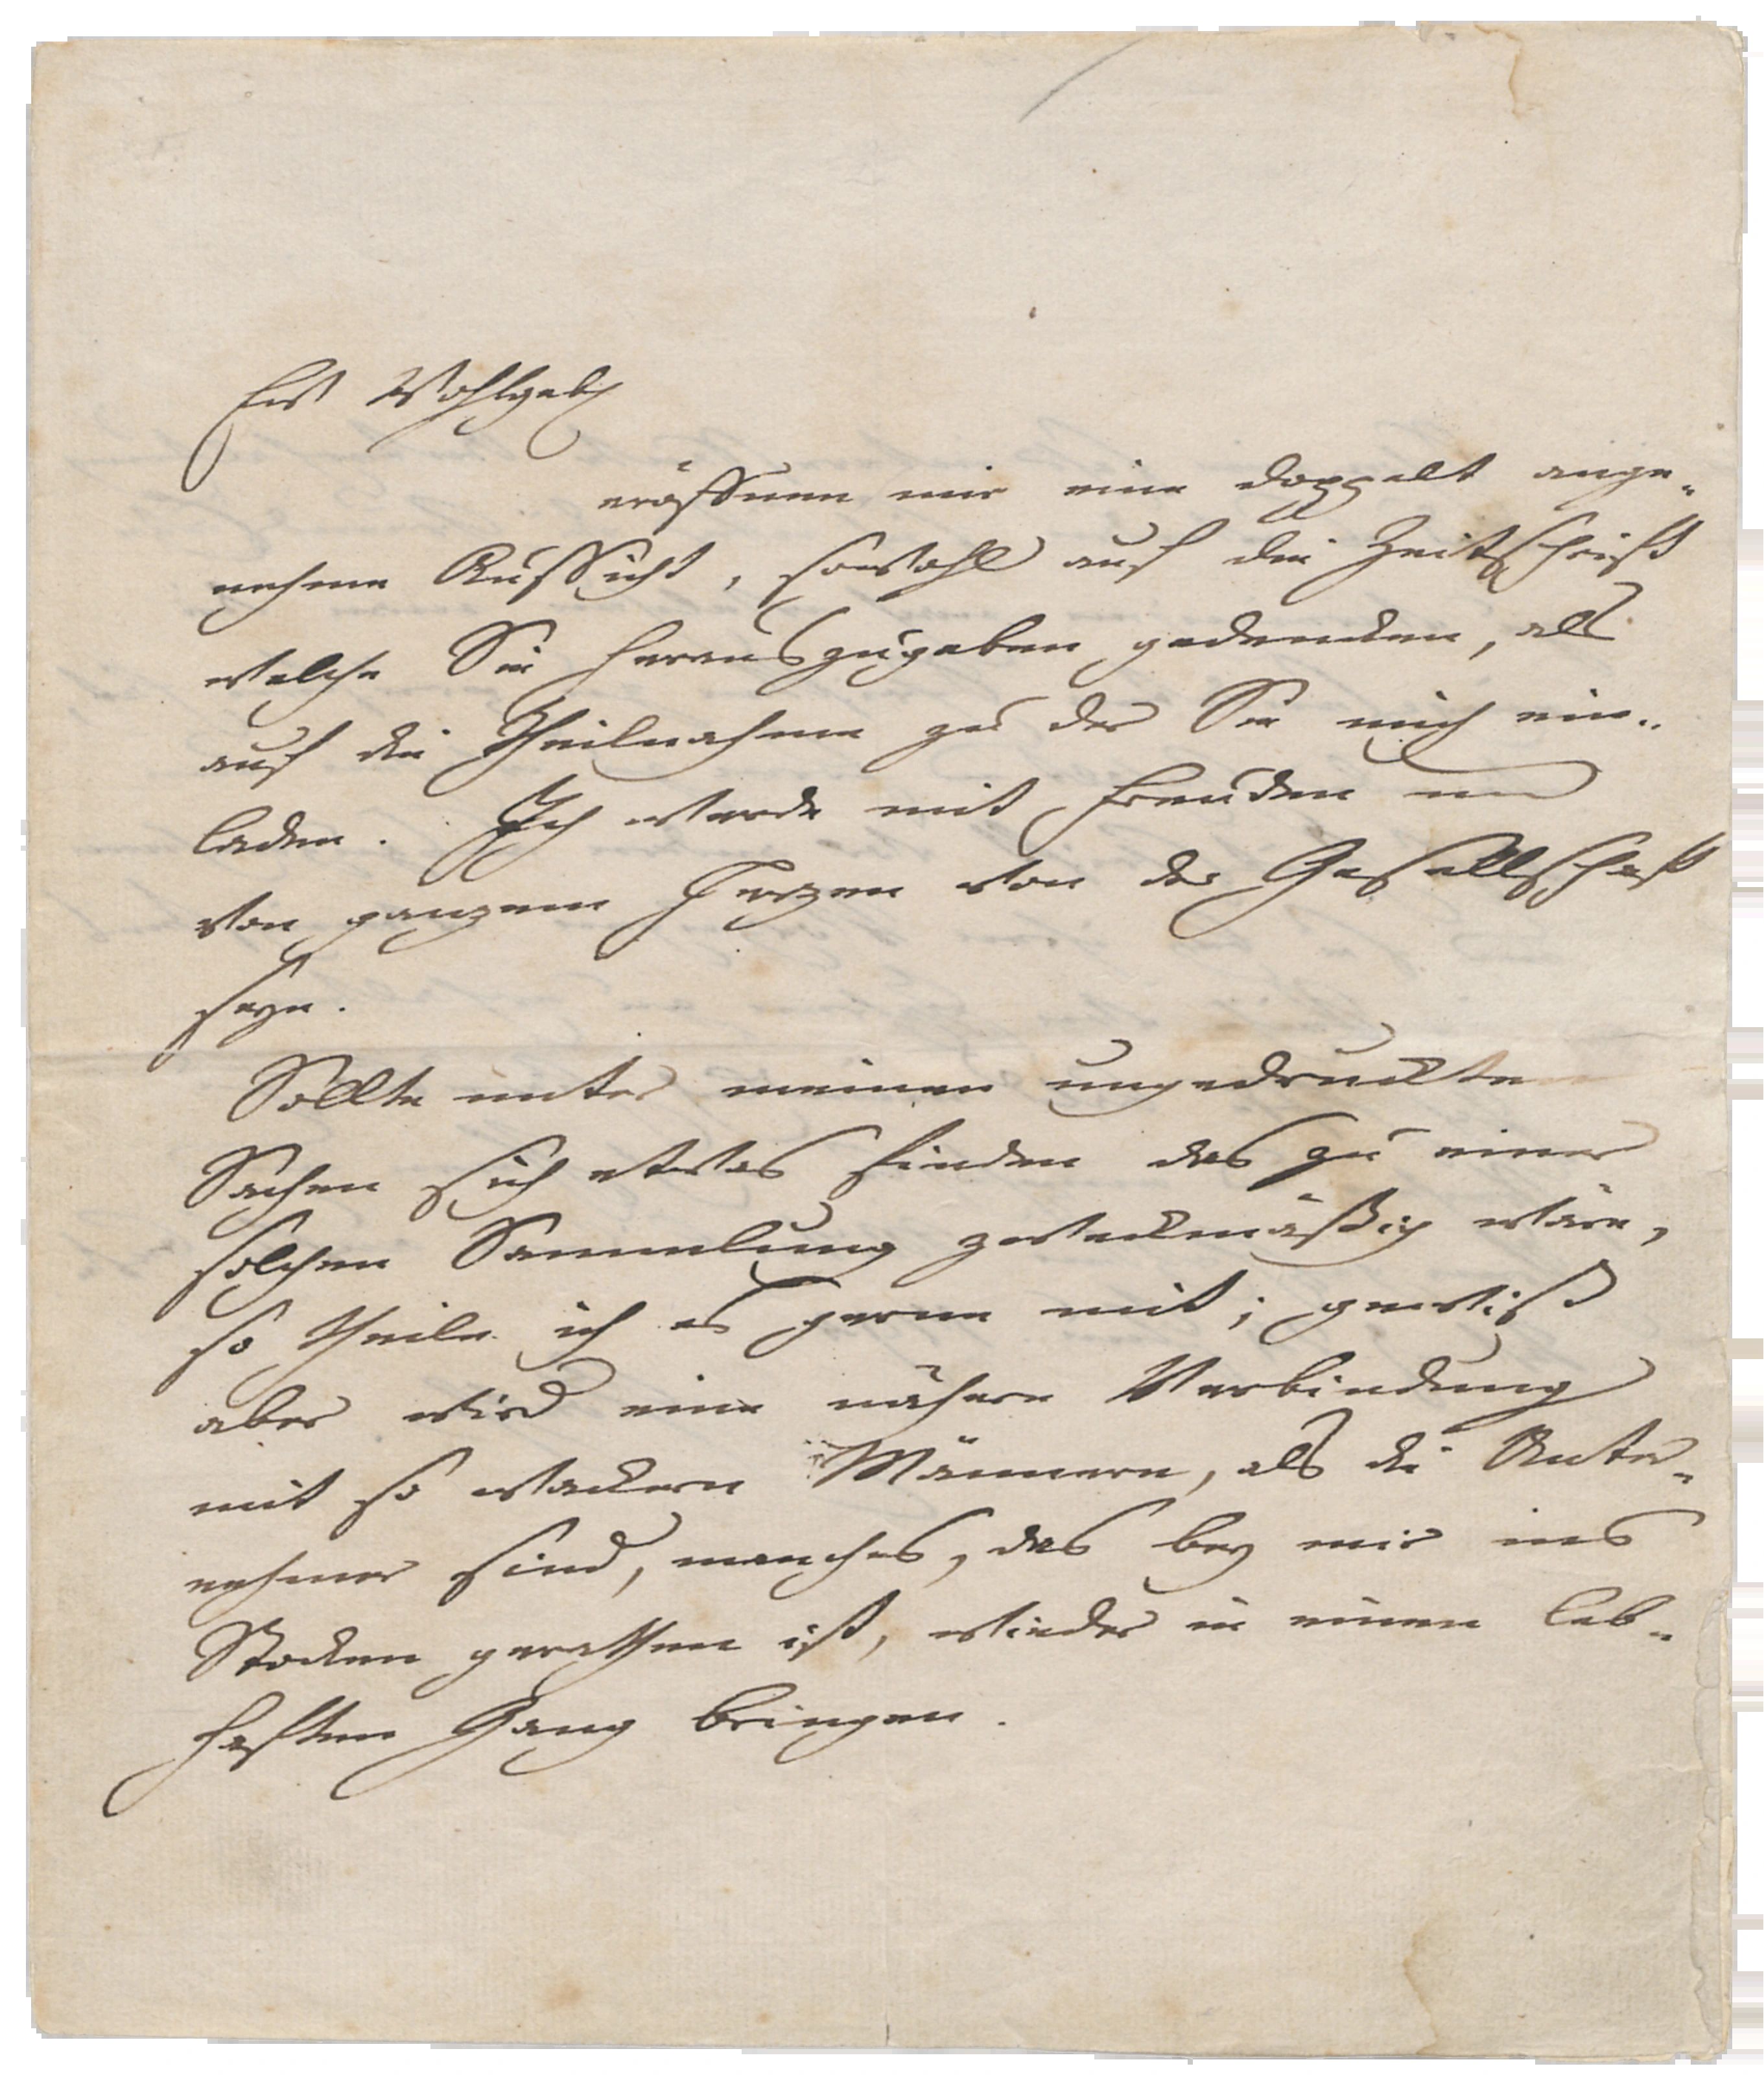 Ew Wohlgeb
eröffnen mir eine doppelt ange-
nehme Aussicht, sowohl auf die Zeitschrift
welche Sie herauszugeben gedencken, als
auf die Theilnahme zu der Sie mich ein-
laden. Ich werde mit Freuden und
von ganzem Herzen von der Gesellschaft
seyn.
Sollte unter meinen ungedruckten
Sachen sich etwas finden das zu einer
solchen Sammlung zweckmäßig wäre,
so theile ich es gerne mit; gewiß
aber wird eine nähere Verbindung
mit so wackern Männern, als die Unter-
nehmer sind, manches, das bey mir ins
Stocken gerathen ist, wieder in einen leb-
haften Gang bringen.